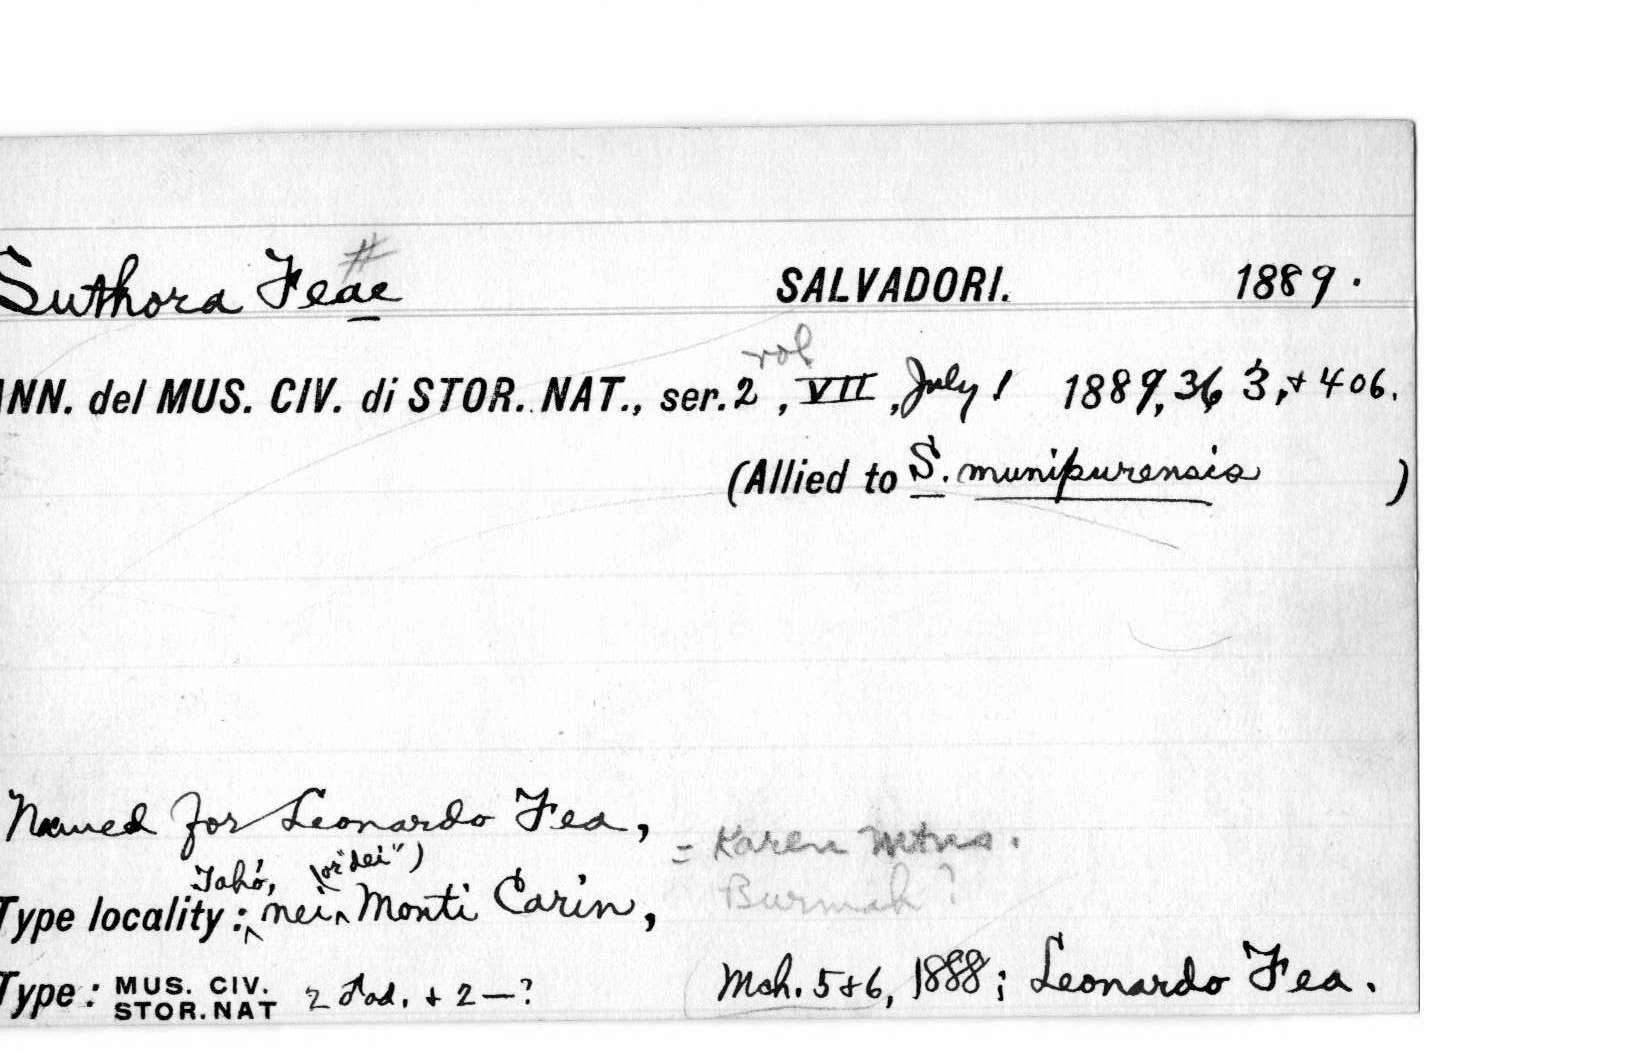 #
Suthora Feae SALVADORI. 1889.
vol
ANN. del MUS. CIV. di STOR. NAT., ser. 2, VII, July 1 1889, 363, + 406.
(Allied to S. munipurensis)
Named for Leonardo Fea,
= Karen Mtns.
Tahó, (or "dei")
Burmah?
Type locality: nei Monti Carin,
Type: MUS. CIV. STOR. NAT 2 ♂ ad. + 2 — ? Mch. 5+6, 1888; Leonardo Fea.